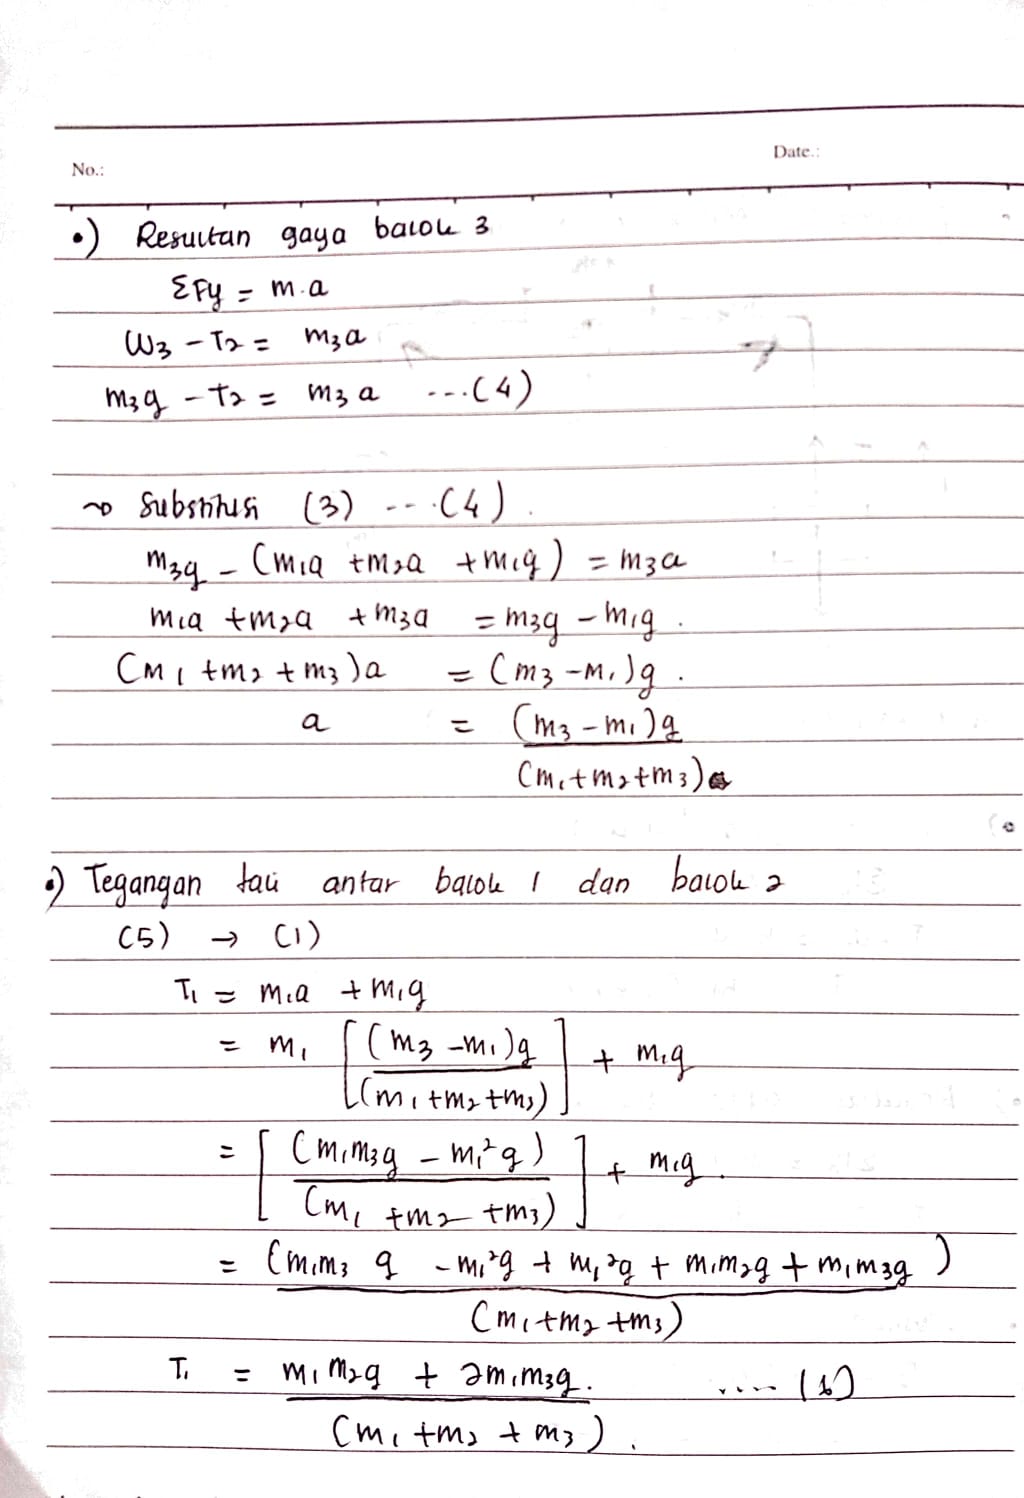 No.:
Date.:
•) Resultan gaya balok 3
ΣFy = m.a
W₃ - T₂ = m₃a
m₃g - T₂ = m₃a ...(4)
~> Substitusi (3) ... (4).
m₃g - (m₁a + m₂a + m₁g) = m₃a
m₁a + m₂a + m₃a = m₃g - m₁g.
(m₁ + m₂ + m₃)a = (m₃ - m₁)g.
a = (m₃ - m₁)g
(m₁ + m₂ + m₃)
•) Tegangan tali antar balok 1 dan balok 2
(5) → (1)
T₁ = m₁a + m₁g
= m₁ [(m₃ - m₁)g / (m₁ + m₂ + m₃)] + m₁g
= [(m₁m₃g - m₁²g) / (m₁ + m₂ + m₃)] + m₁g.
= (m₁m₃g - m₁²g + m₁²g + m₁m₂g + m₁m₃g)
(m₁ + m₂ + m₃)
T₁ = m₁m₂g + 2m₁m₃g. .... (6)
(m₁ + m₂ + m₃).